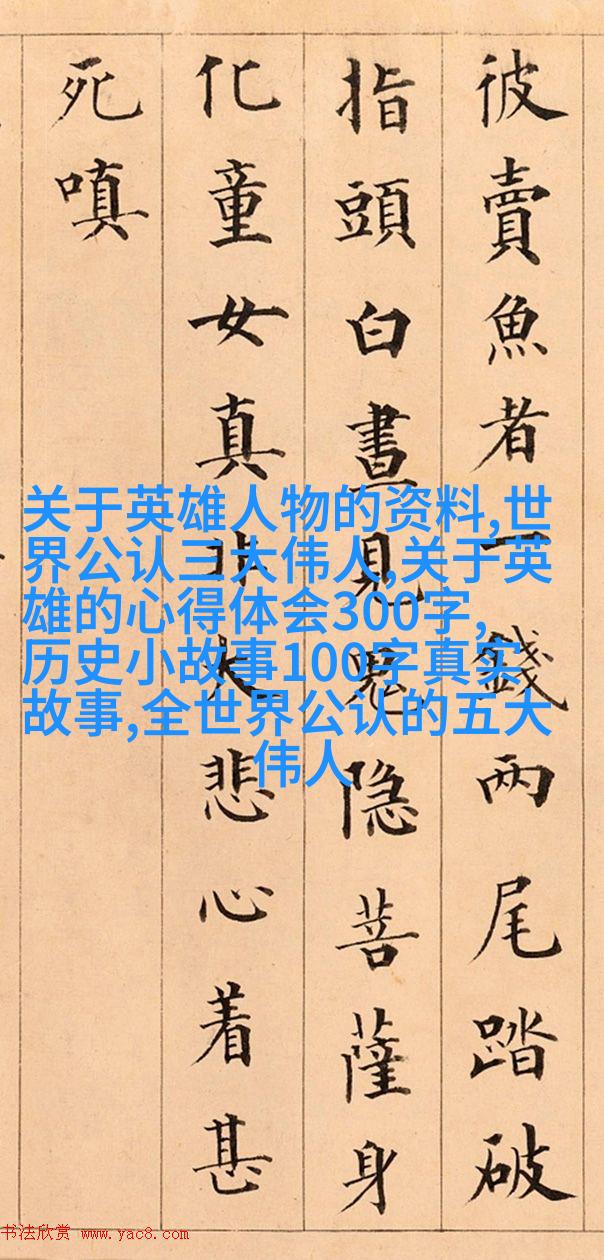 彼賣魚者一錢兩尾踏破
指頭白晝見鬼隐菩薩身
化童女真非大悲心着甚
死嗔
关于英雄人物的资料,世
界公认三大伟人,关于英
雄的心得体会300字,
历史小故事100字真实
故事,全世界公认的五大
伟人
书法欣赏 www.yac8.com